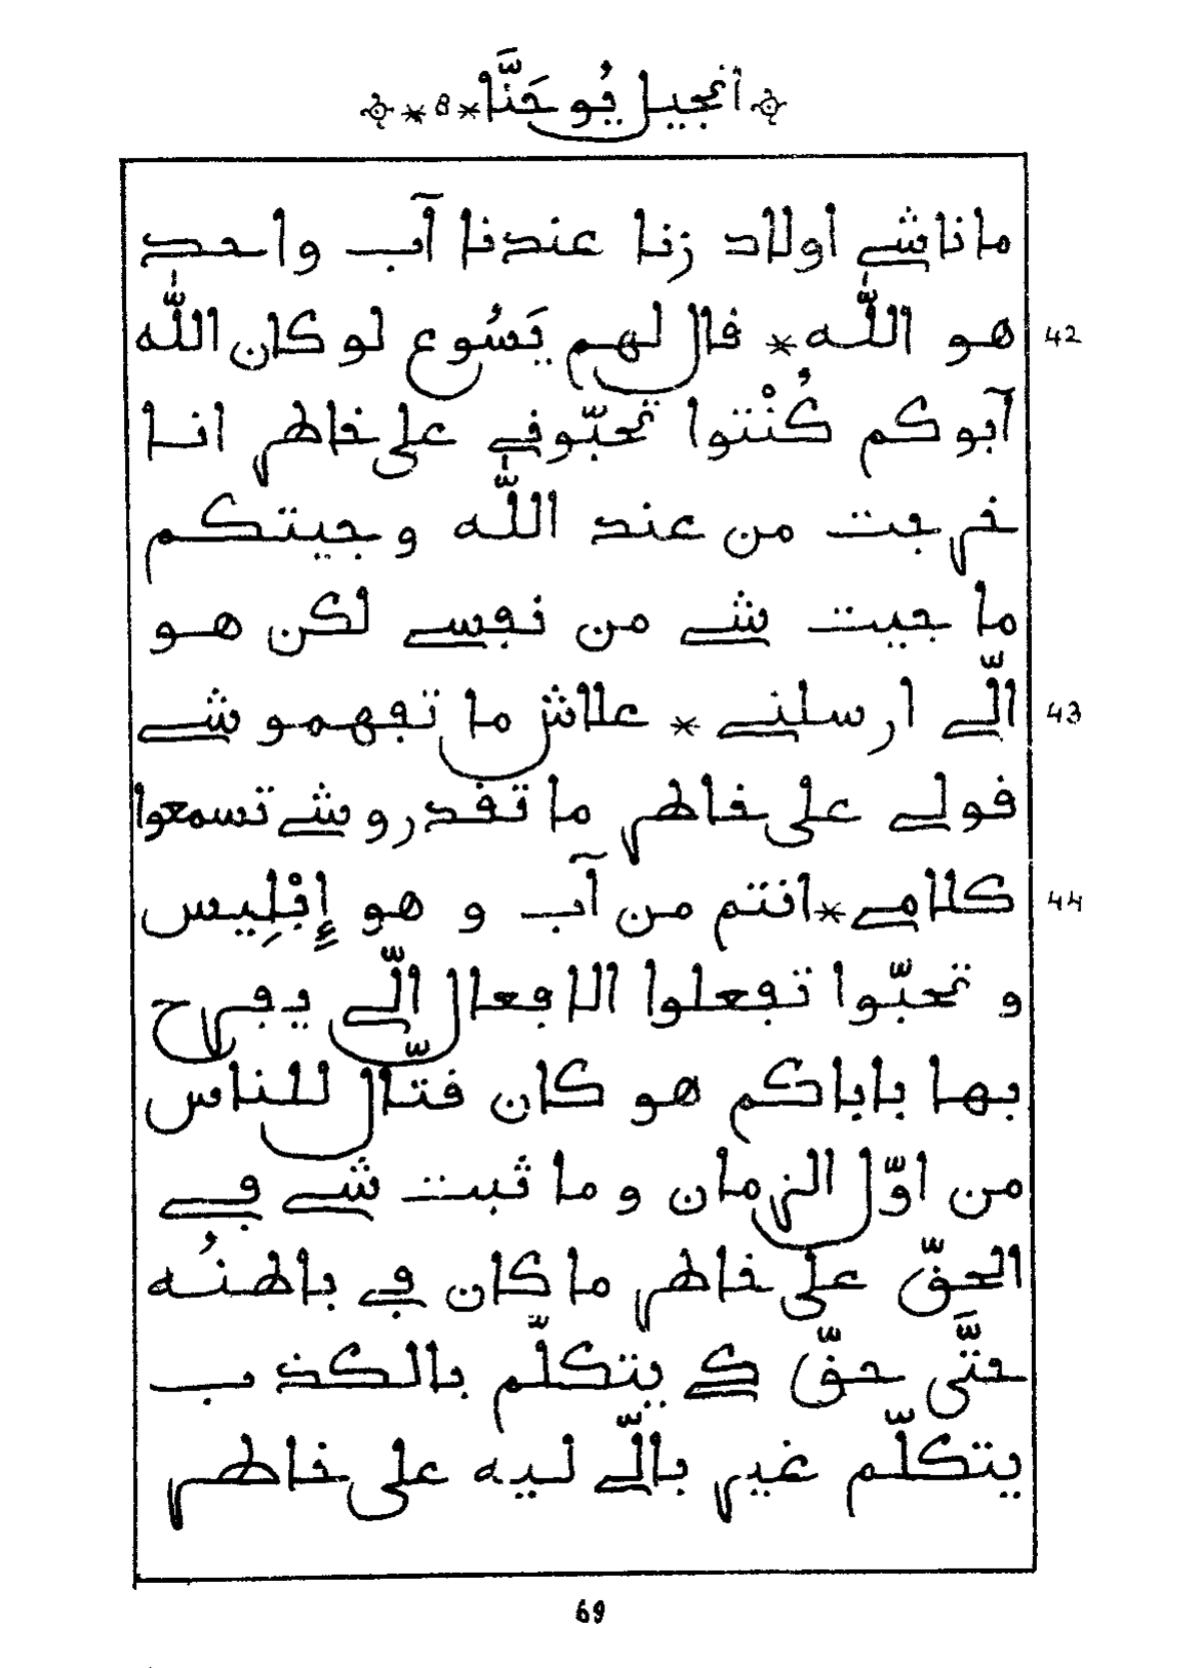 أنجيل يُوحَنَّا * 8 *
مانا شي اولاد زنا عندنا آب واحد
42 هو اللّٰه * قال لهم يَسُوع لو كان اللّٰه
آبوكم كُنْتوا تحبّوني على خاطر انا
خرجت من عند اللّٰه وجيتكم
ما جيت شي من نفسي لكن هو
43 الّي ارسلني * علاش ما تفهموشي
قولي على خاطر ما تقدروشي تسمعوا
44 كلامي * انتم من آب و هو إِبْلِيس
و تحبّوا تفعلوا الافعال الّي يفرح
بها باباكم هو كان قتّال للناس
من اوّل الزمان و ما ثبت شي في
الحقّ على خاطر ما كان في باطنُه
حتَّى حقّ كي يتكلّم بالكذب
يتكلّم غير بالّي ليه على خاطر
69